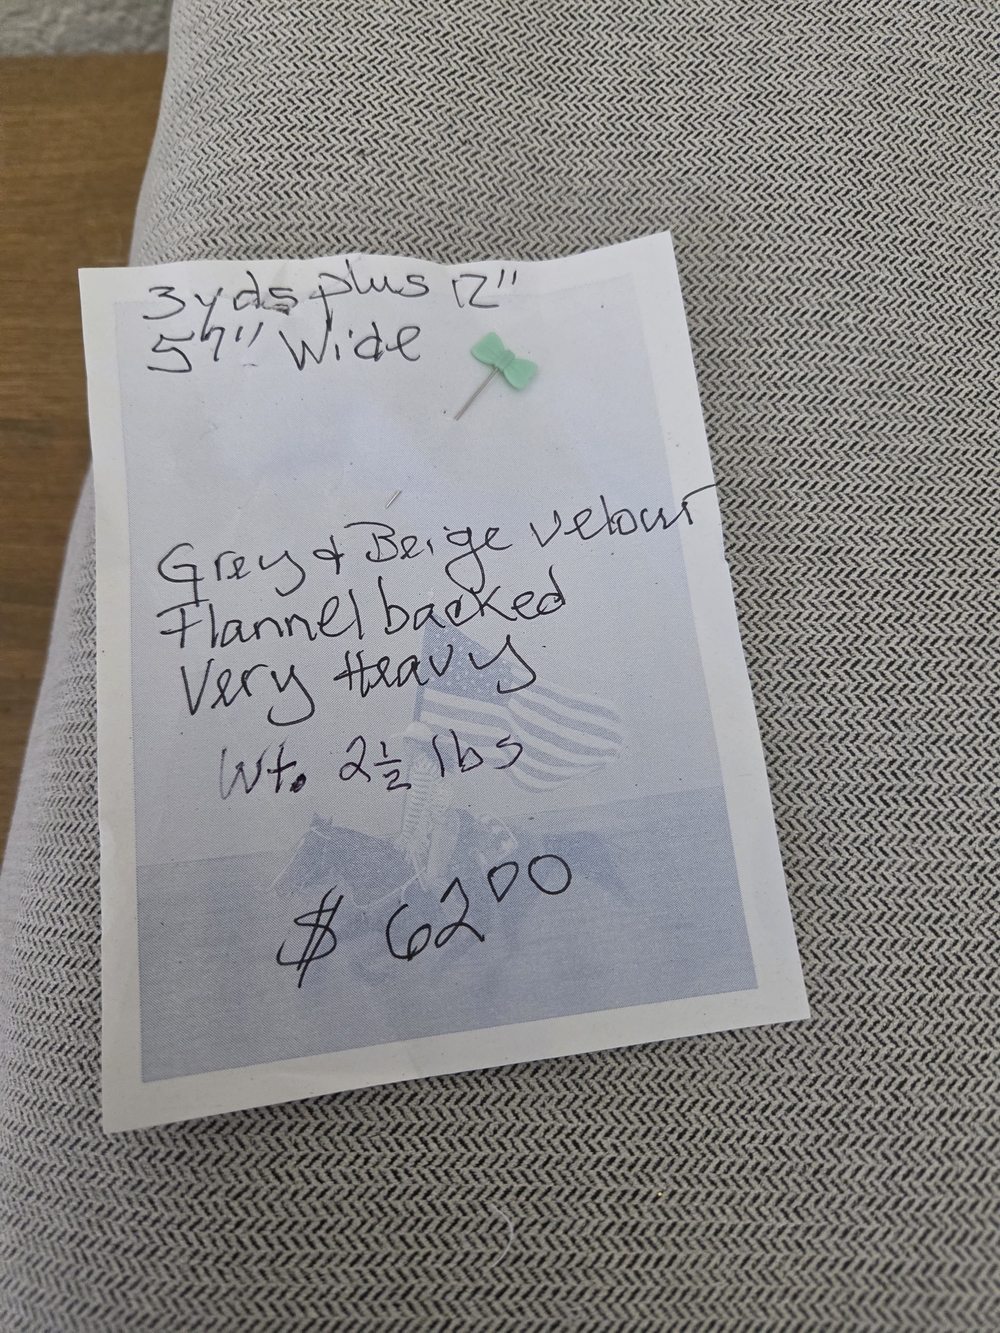 3 yds plus 12"
57" Wide
Grey & Beige velour
Flannel backed
Very Heavy
Wt. 2½ lbs
$ 62 00